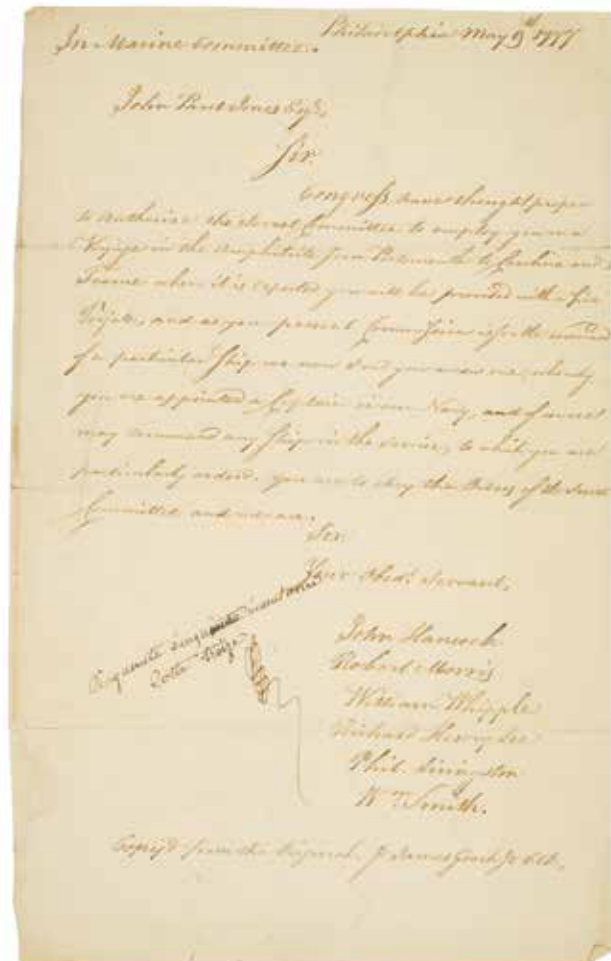 Philadelphia May 9th 1777
In Marine Committee.
John Paul Jones Esqr.
Sir.
Congress have thought proper
to authorize the Secret Committee to employ you on a
Voyage in the Amphitrite from Portsmouth to Carolina and
France where it is expected you will be provided with a fine
Frigate, and as your present Commission is for the command
of a particular Ship we now send you a new one, whereby
you are appointed a Captain in our Navy, and of course
may command any Ship in the service, to which you are
particularly ordered. you are to obey the Orders of the Secret
Committee and we are.
Sir
Your Obedt. Servants
John Hancock
Robert Morris
William Whipple
Richard Henry Lee
Phil. Livingston
Wm. Smith.
Copy'd from the Original,